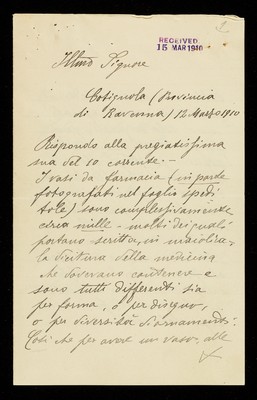 RECEIVED
15 MAR 1910
Illmo Signore
Cotignola (Provincia
di Ravenna) 12 Marzo 1910
Rispondo alla pregiatissima
sua del 10 corrente. -
I vasi da farmacia (in parte
fotografati nel foglio spedi
tole) sono complessivamente
circa mille - molti dei quali
portano scritta, in maiolica -
la dicitura della medicina
che dovevano contenere e
sono tutti differenti sia
per forma, o per disegno,
o per diversità d'ornamento:
Così che per avere un vaso alle